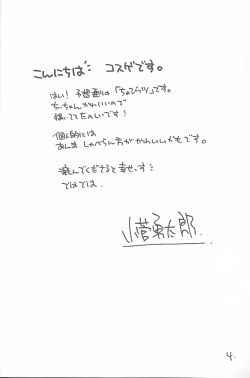 こんにちは コスゲです。
はい! 予想通りの「ちょびっツ」です。
ちぃちゃんかわいいので
描いててたのしいです!
個人的には
あんま しゃべらん方がかわいいかもです。
喜んでくださると幸せ、す
ではでは。
小菅勇太郎.
4.